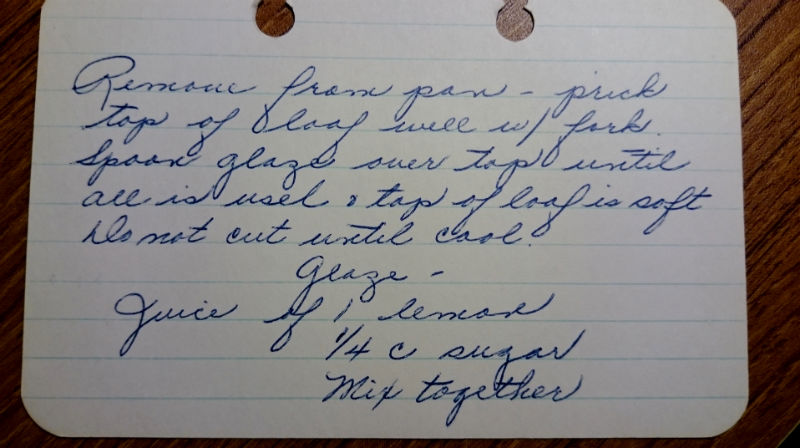 Remove from pan - prick
top of loaf well w/ fork.
Spoon glaze over top until
all is used & top of loaf is soft
Do not cut until cool.
Glaze -
Juice of 1 lemon
1/4 c sugar
Mix together